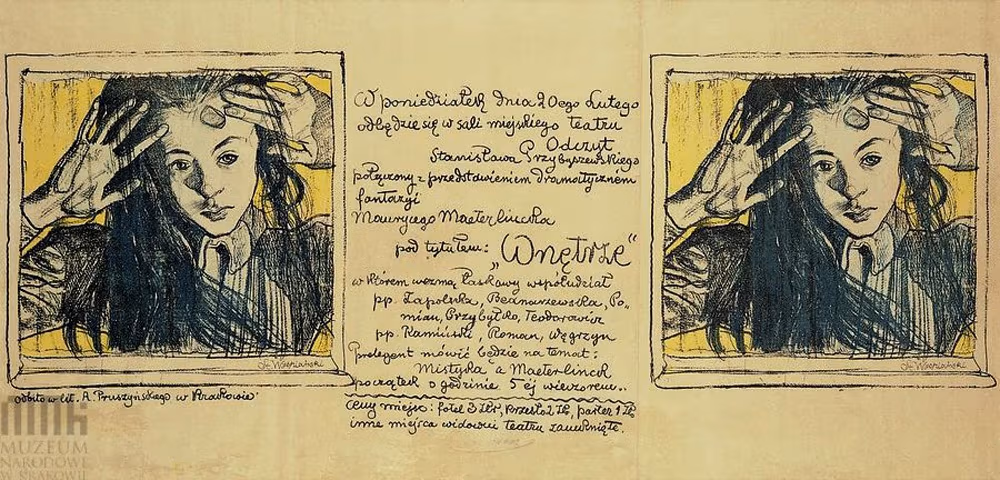 W poniedziałek dnia 20ego Lutego
odbędzie się w sali miejskiego teatru
Odczyt
Stanisława Przybyszewskiego
połączony z przedstawieniem dramatycznem
fantazyi
Maurycego Maeterlincka
pod tytułem: „Wnętrze“
w którem wezmą łaskawy współudział
pp. Zapolska, Bednarzewska, Po-
mian, Przybyłko, Teodorowicz
pp. Kamiński, Roman, Węgrzyn
Prelegent mówić będzie na temat:
Mistyka a Maeterlinck
początek o godzinie 5ej wieczorem..
Ceny miejsc: fotel 3 złr, krzesło 2 zł, parter 1 zł,
inne miejsca widowni teatru zamknięte.
St Wyspiański
St Wyspiański
odbito w lit. A. Pruszyńskiego w Krakowie
MUZEUM
NARODOWE
W KRAKOWIE